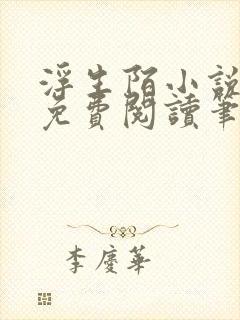 浮生陌小說
免費閱讀筆
李慶華